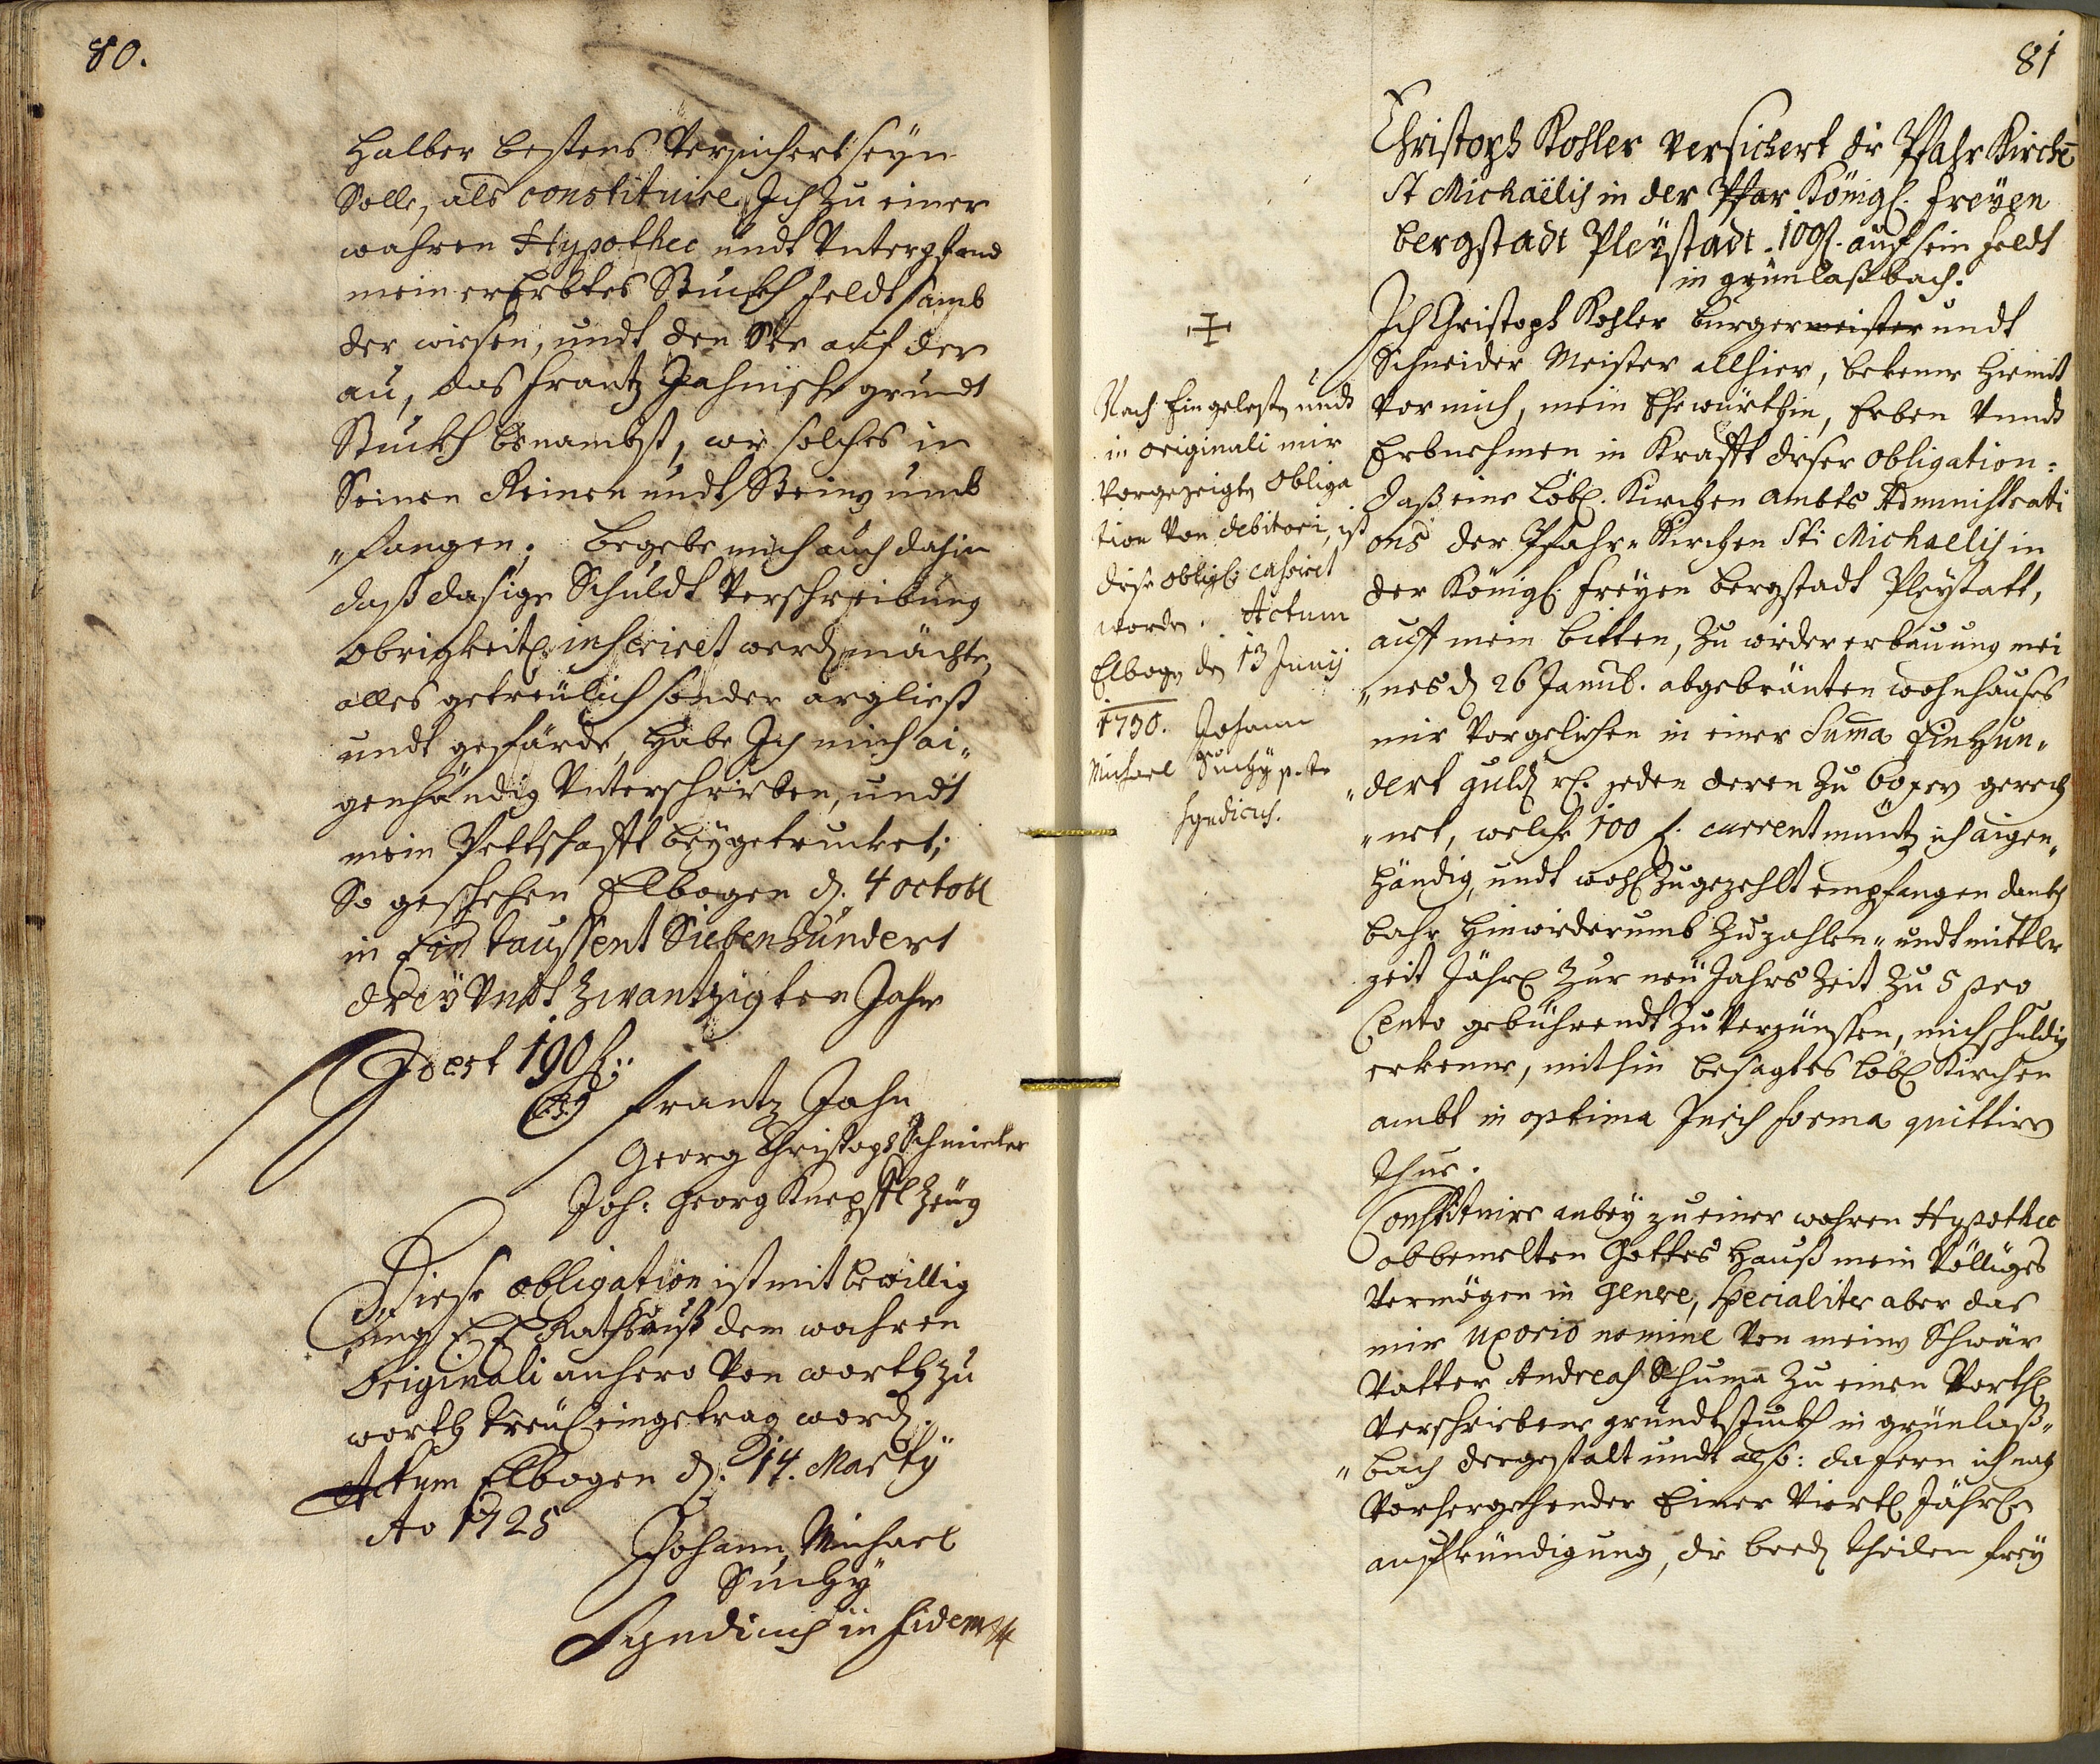 80.
halber bestens Versichert seÿn
Solle, als constituire Ich zu einer
wahren Hypothec undt Unterpfand
mein ererbtes Stuckh feldt samb
der wiesen, undt den auf der
au, das Frantz Jahnische grundt
Stuckh benambst, wie solches in
Seinen Reinen undt Stein umb
"fangen. begebe mich auch dahin
daß dasige Schuldt Verschreibung
obrigkeitl. inseriret werd möchte,
alles getreülich sonder arglist
undt gefärde, habe Ich mich ai"
genhändig Unterschrieben, undt
mein Pettschafft beÿgetrucket;
So geschehen Elbogen d. 4 octobr
in Ein taussent Siebenhundert
dreÿ Undt Zwantzigten Jahr
Id est 190 f:
L.S. Frantz Jahn
Georg Christoph Schmieder
Joh: Georg Zeüg
Diese obligation ist mit bewillig
ung E. E. Raths auß dem wahren
Originali anhero Von worth zu
worth treül eingetrag word.
Actum Elbogen d. 14. Martÿ
Ao 1725
Johann Michael
Suchÿ
Syndicus in fidem
81
Christoph Kohler versichert die Pfahr Kirche
St Michaëlis in der Pfar Königl. freÿen
bergstadt Pleÿstadt 100 f. auf sein feldt
in grünlaßbach.
Ich Christoph Kohler burgermeister undt
Schneider Meister allhier, bekenne hiemit
Vor mich, mein Ehewürthin, Erben Unndt
Erbnehmen in Krafft dieser obligation:
daß eine löbl. Kirchen ambts Administrati
ons der Pfahr" Kirchen Sti Michaelis in
der Königl. freÿen bergstadt Pleÿstatt,
auff mein bitten, zu wieder erbauung mei
"nes d 26 Janub. abgebränten wohnhauses
mir Vorgeliehen in einer Suma Einhun"
"dert guld rh. jeden deren zu 60 xer gerech
"net, welche 100 f. current müntz ich aigen"
händig, undt wohl zugezehlt empfangen danckh
bahr hinwiederumb zu zahlen" undt mittler
zeit Jährl zur neü Jahrs Zeit zu 5 pro
Cento gebührendt zu Verzünssen, mich schuldig
erkenne, mithin besagtes löbl Kirchen
ambt in optima Juris forma quittire
thue.
Constituire anbeÿ zu einer wahren Hypothec
obbemelten Gottes Hauß mein Völliges
Vermögen in genere, specialiter aber das
mir uxorio nomine Von meine Schwär
Vatter Andreas Schuma zu einen Vorthl
Verschriebene grundtstuckh in grünlaß"
"bach dergestalt undt also: dafern ich nach
Vorhergehender Einer Viertl Jährl
auffkündigung, die beed theilen freÿ
Nach Eingelegte undt
in originali mir
Vorgezeigte obliga
tion Von debitori, ist
diese oblig. cassiret
worden. Actum
Elbogen den 13 Junÿ
1730. Johann
Michael Suchÿ
Syndicus.